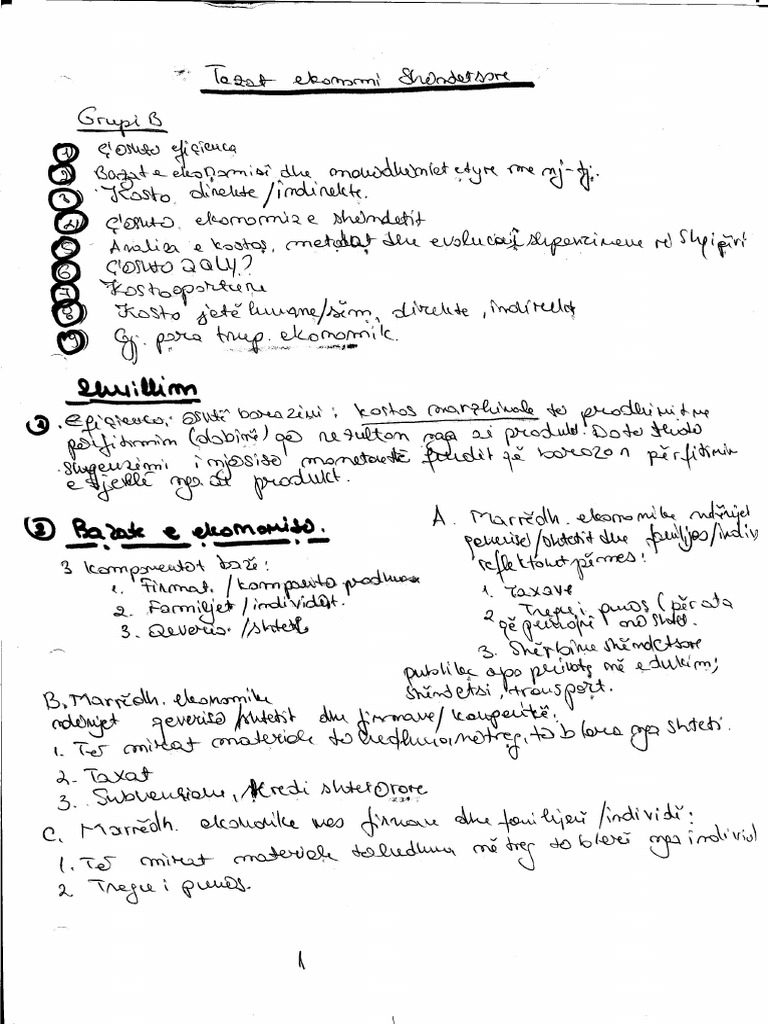 Tezat ekonomi Shëndetsore
Grupi B
1 Ç'është efiçenca
2 Bazat e ekonomisë dhe marrëdhëniet etyre me nj-tj.
3 Kosto direkte/indirekte.
4 Ç'është ekonomia e shëndetit
5 Analiza e kostos, metodat dhe evolucioni shpenzimeve në Shqipëri
6 Ç'është QALY?
7 Kosto oportune
8 Kosto jetë humane/sëm, direkte, indirekte
9 Gj. para trup. ekonomik.
Zhvillim
1. Efiçenca; është barazimi i kostos marzhinale të prodhimit me
përfitimin (dobinë) që rezulton nga ai produkt. Do të thotë
shpenzimi i njësisë monetare të fundit që barazon përfitimin
e tjetër nga ai produkt.
2 Bazat e ekonomisë.
3 Komponentët bazë:
1. Firmat / kompanitë prodhuese
2. Familjet / individët.
3. Qeveria / shteti
A. Marrëdh. ekonomike ndërmjet
qeverisë/shtetit dhe familjes/indiv
reflektohet përmes:
1. Taxave
2 Tregu i punës (për ata
që punojnë në shtet.
3. Shërbime shëndetsore
publike apo private në edukim,
shëndetsi, transport.
B. Marrëdh. ekonomike
ndërmjet qeverisë/shtetit dhe firmave/kompanitë.
1. Të mirat materiale të hedhura në treg, të blera nga shteti.
2. Taxat
3. Subvencione, kredi shtetërore
C. Marrëdh. ekonomike mes firmave dhe familjeri/individi:
1. Të mirat materiale të hedhura në treg të bleri nga individ
2 Tregu i punës.
1